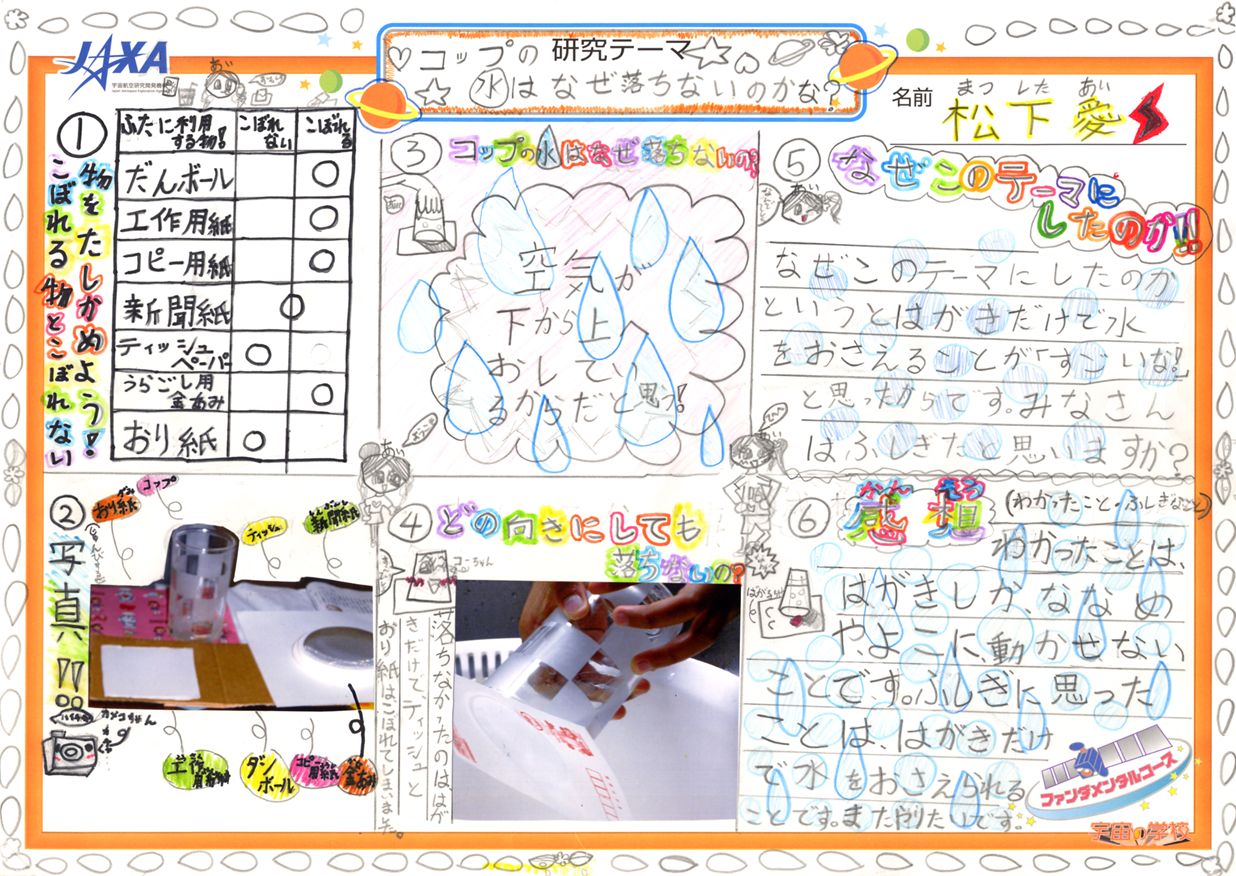 JAXA
宇宙航空研究開発機構
研究テーマ
コップの
水はなぜ落ちないのかな?
名前
まつ した あい
松下愛
①
物をたしかめよう!
こぼれる物とこぼれない
ふたに利用する物!
こぼれない
こぼれる
だんボール
工作用紙
コピー用紙
新聞紙
ティッシュペーパー
うらごし用金あみ
おり紙
②写真!!
おり紙
コップ
ティッシュ
新聞紙
カメコちゃん
ダンボール
③コップの水はなぜ落ちないの?
空気が
下から上
おしてい
るからだと思う!
④どの向きにしても
落ちないの?
落ちなかったのは、はが
きだけで、ティッシュと
おり紙はこぼれてしまいました。
⑤なぜこのテーマに
したのか!!
あい
なぜこのテーマにしたのか
というとはがきだけで水
をおさえることが「すごいな!」
と思ったからです。みなさん
はふしぎだと思いますか?
⑥感想
かん そう
(わかったこと・ふしぎなこと)
わかったことは、
はがきしか、ななめ
や、よこに動かせない
ことです。ふしぎに思った
ことは、はがきだけ
で水をおさえられる
ことです。またやりたいです。
ファンダメンタルコース
宇宙の学校